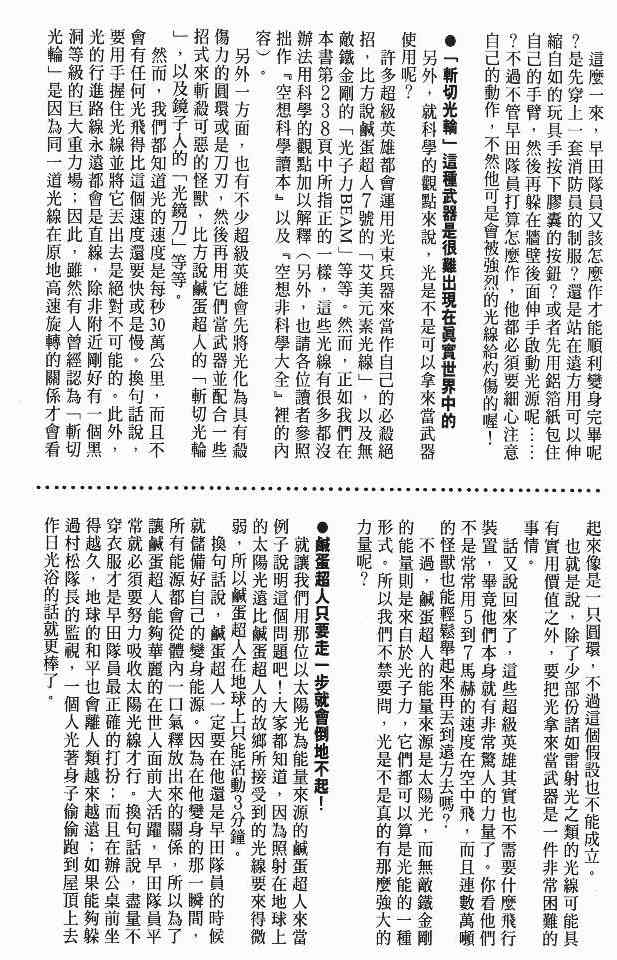 這麼一來，早田隊員又該怎麼作才能順利變身完畢呢
？是先穿上一套消防員的制服？還是站在遠方用可以伸
縮自如的玩具手按下膠囊的按鈕？或者先用鋁箔紙包住
自己的手臂，然後再躲在牆壁後面伸手啟動光源呢……
？不過不管早田隊員打算怎麼作，他都必須要細心注意
自己的動作，不然他可是會被強烈的光線給灼傷的喔！
●「斬切光輪」這種武器是很難出現在真實世界中的
　另外，就科學的觀點來說，光是不是可以拿來當武器
使用呢？
　許多超級英雄都會運用光束兵器來當作自己的必殺絕
招，比方說鹹蛋超人7號的「艾美元素光線」，以及無
敵鐵金剛的「光子力BEAM」等等。然而，正如我們在
本書第238頁中所指正的一樣，這些光線有很多都沒
辦法用科學的觀點加以解釋（另外，也請各位讀者參照
拙作『空想科學讀本』以及『空想非科學大全』裡的內
容）。
　另外一方面，也有不少超級英雄會先將光化為具有殺
傷力的圓環或是刀刃，然後再用它們當武器並配合一些
招式來斬殺可惡的怪獸，比方說鹹蛋超人的「斬切光輪
」，以及鏡子人的「光鏡刀」等等。
　然而，我們都知道光的速度是每秒30萬公里，而且不
會有任何光飛得比這個速度還要快或是慢。換句話說，
要用手握住光線並將它丟出去是絕對不可能的。此外，
光的行進路線永遠都會是直線，除非附近剛好有一個黑
洞等級的巨大重力場；因此，雖然有人曾經認為「斬切
光輪」是因為同一道光線在原地高速旋轉的關係才會看
起來像是一只圓環，不過這個假設也不能成立。
　也就是說，除了少部份諸如雷射光之類的光線可能具
有實用價值之外，要把光拿來當武器是一件非常困難的
事情。
　話又說回來了，這些超級英雄其實也不需要什麼飛行
裝置，畢竟他們本身就有非常驚人的力量了。你看他們
不是常常用5到7馬赫的速度在空中飛，而且連數萬噸
的怪獸也能輕鬆舉起來再丟到遠方去嗎？
　不過，鹹蛋超人的能量來源是太陽光，而無敵鐵金剛
的能量則是來自於光子力，它們都可以算是光能的一種
形式。所以我們不禁要問，光是不是真的有那麼強大的
力量呢？
●鹹蛋超人只要走一步就會倒地不起！
　就讓我們用那位以太陽光為能量來源的鹹蛋超人來當
例子說明這個問題吧！大家都知道，因為照射在地球上
的太陽光遠比鹹蛋超人的故鄉所接受到的光線要來得微
弱，所以鹹蛋超人在地球上只能活動3分鐘。
　換句話說，鹹蛋超人一定要在他還是早田隊員的時候
就儲備好自己的變身能源。因為在他變身的那一瞬間，
所有能源都會從體內一口氣釋放出來的關係，所以為了
讓鹹蛋超人能夠華麗的在世人面前大活躍，早田隊員平
常就必須要努力吸收太陽光線才行。換句話說，盡量不
穿衣服才是早田隊員最正確的打扮；而且在辦公桌前坐
得越久，地球的和平也會離人類越來越遠；如果能夠躲
過村松隊長的監視，一個人光著身子偷偷跑到屋頂上去
作日光浴的話就更棒了。